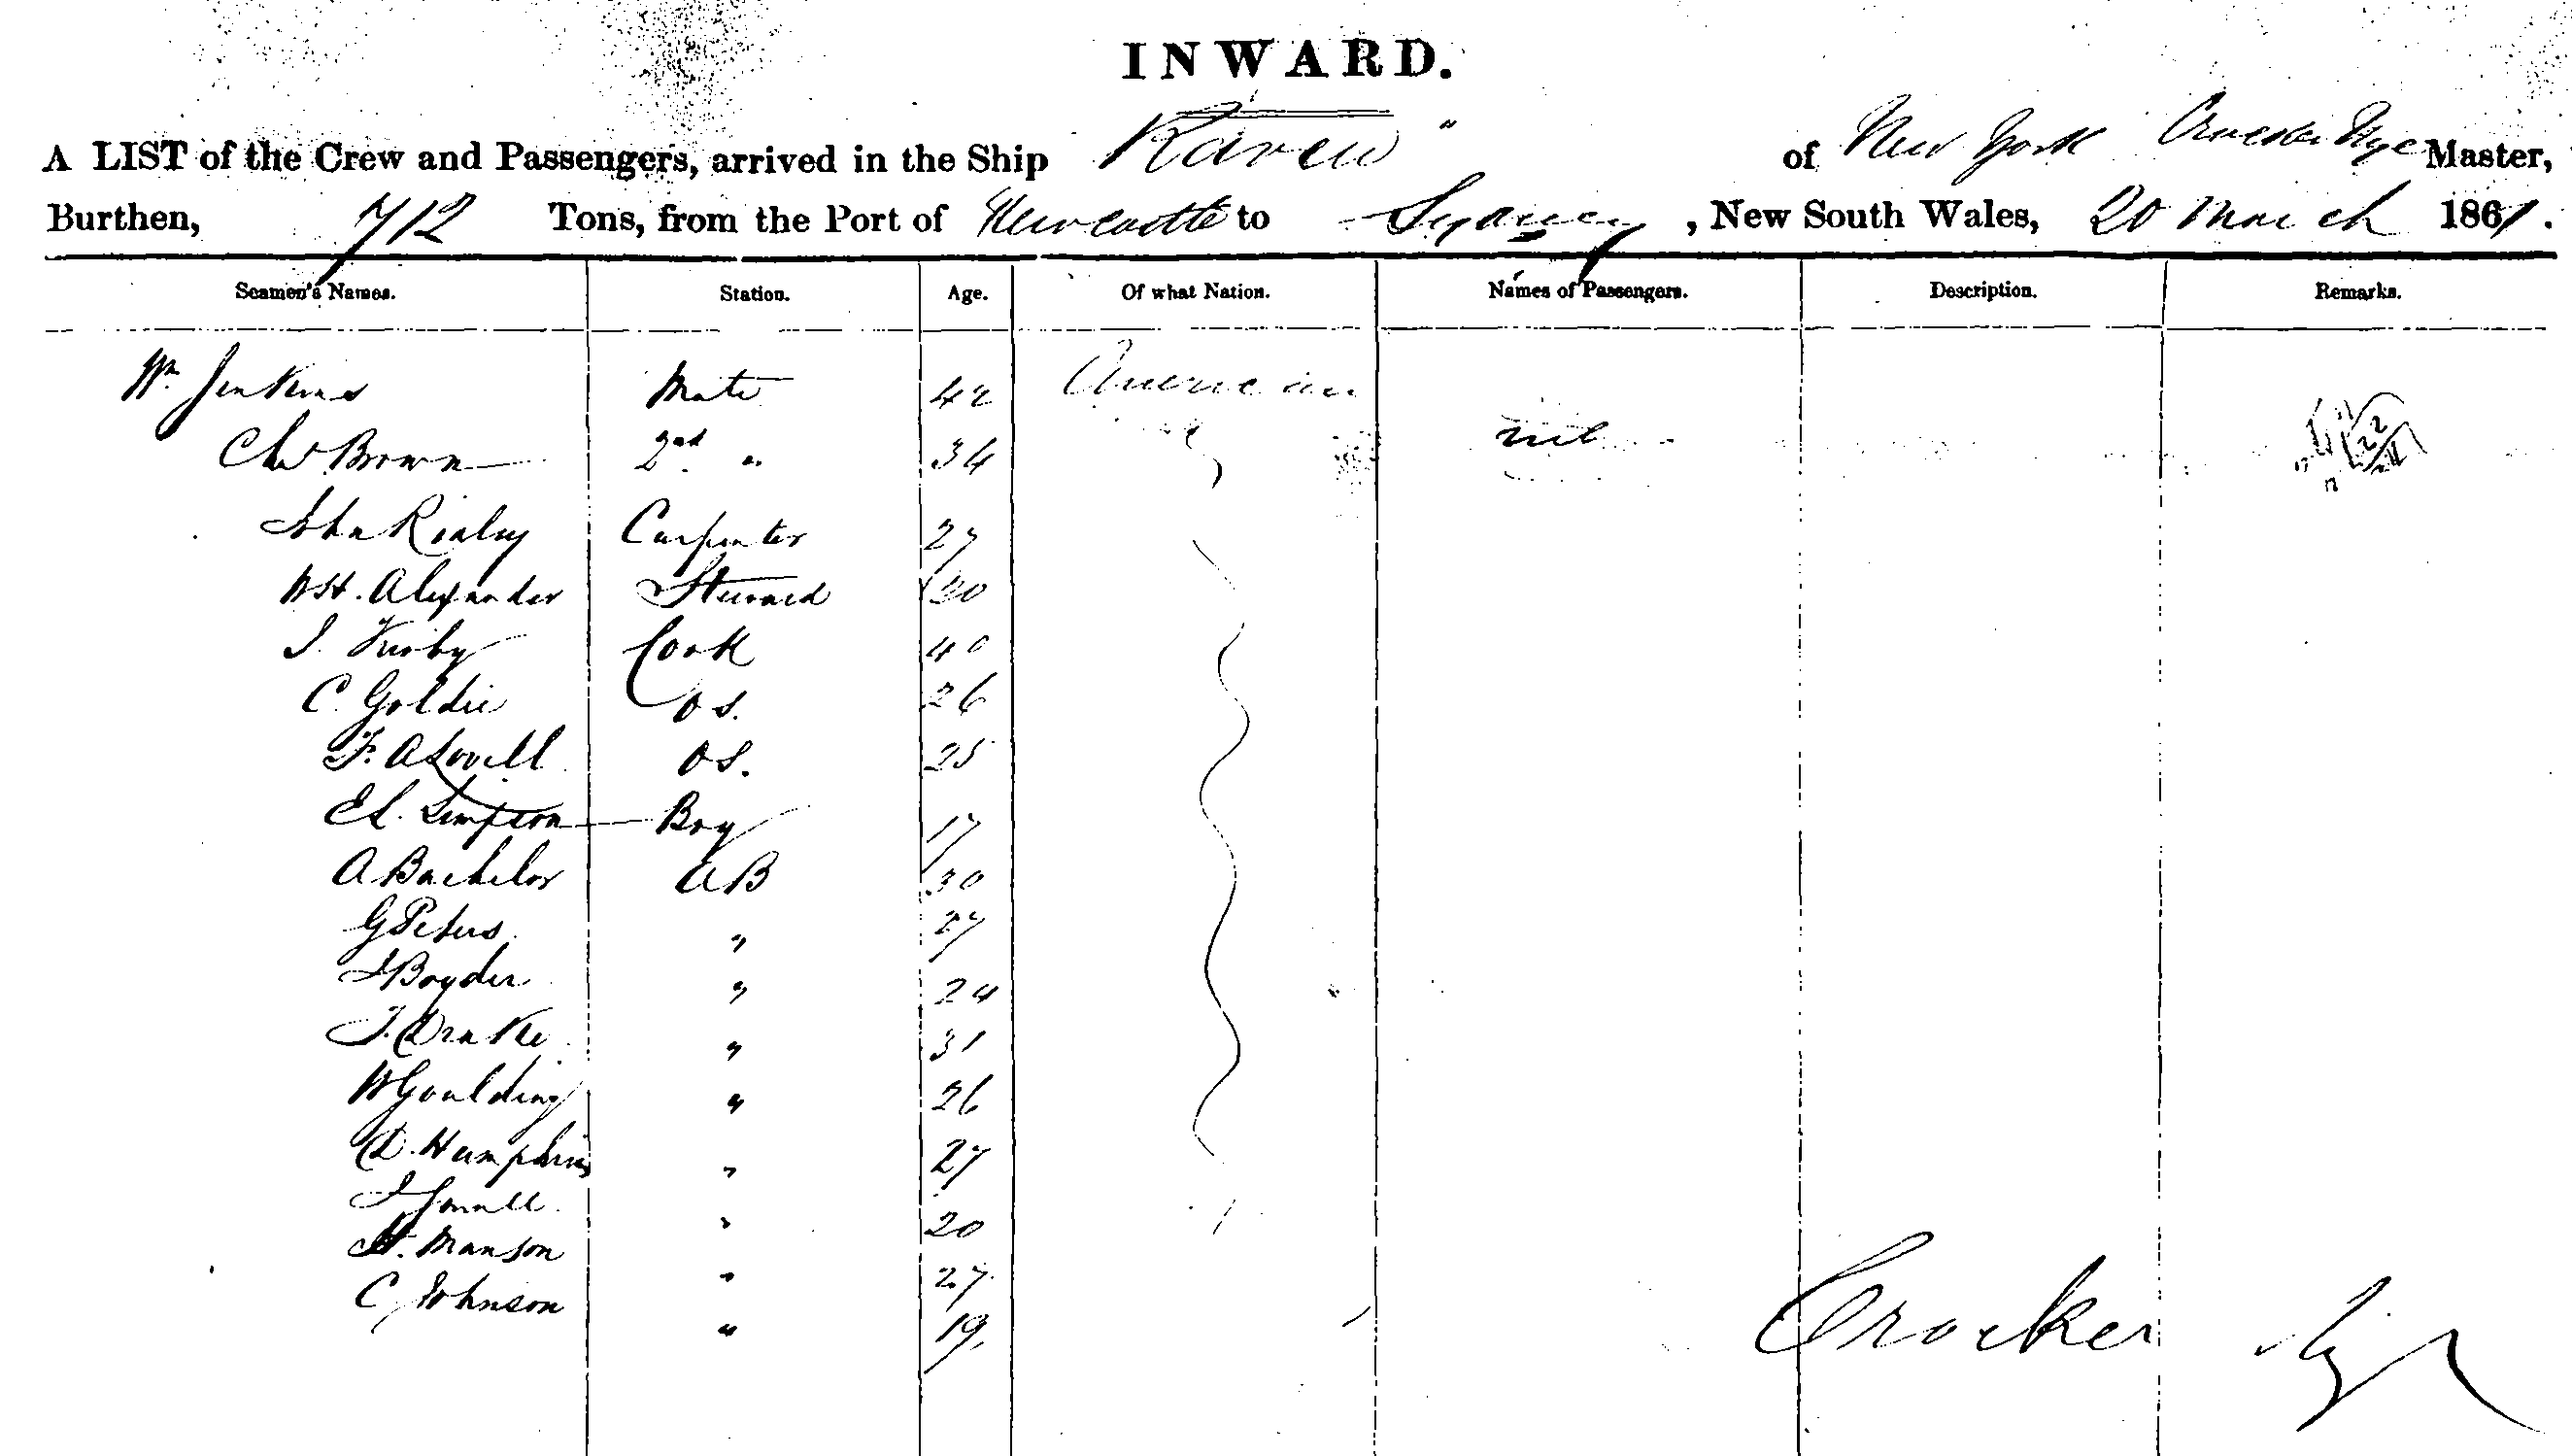 INWARD.
A LIST of the Crew and Passengers, arrived in the Ship Raven" of New York Crocker Nye Master,
Burthen, 712 Tons, from the Port of Newcastle to Sydney, New South Wales, 20 March 1861.
Seamen's Names. Station. Age. Of what Nation. Names of Passengers. Description. Remarks.
Wm Jenkins Mate 42 American
Chs Brown 2nd " 34 " nil
John Carpenter 27
WH. Alexander Steward 30
J. Kirby Cook 40
C. Goldie OS. 26
F. A Lovell OS. 25
E L. Simpson Boy 17
A Bachelor AB 30
G Peters " 27
J Boyder " 24
J. Drake " 31
W Goulding " 26
D. Humphries " 27
J " 20
H. Manson " 27
C Johnson " 19.
Crocker Nye